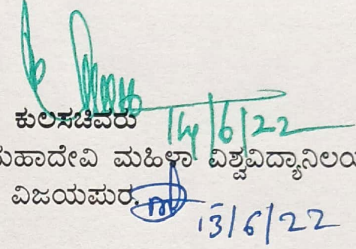 ಕುಲಸಚಿವರು
14/6/22
ಮಹಾದೇವಿ ಮಹಿಳಾ ವಿಶ್ವವಿದ್ಯಾನಿಲಯ
ವಿಜಯಪುರ.
13/6/22